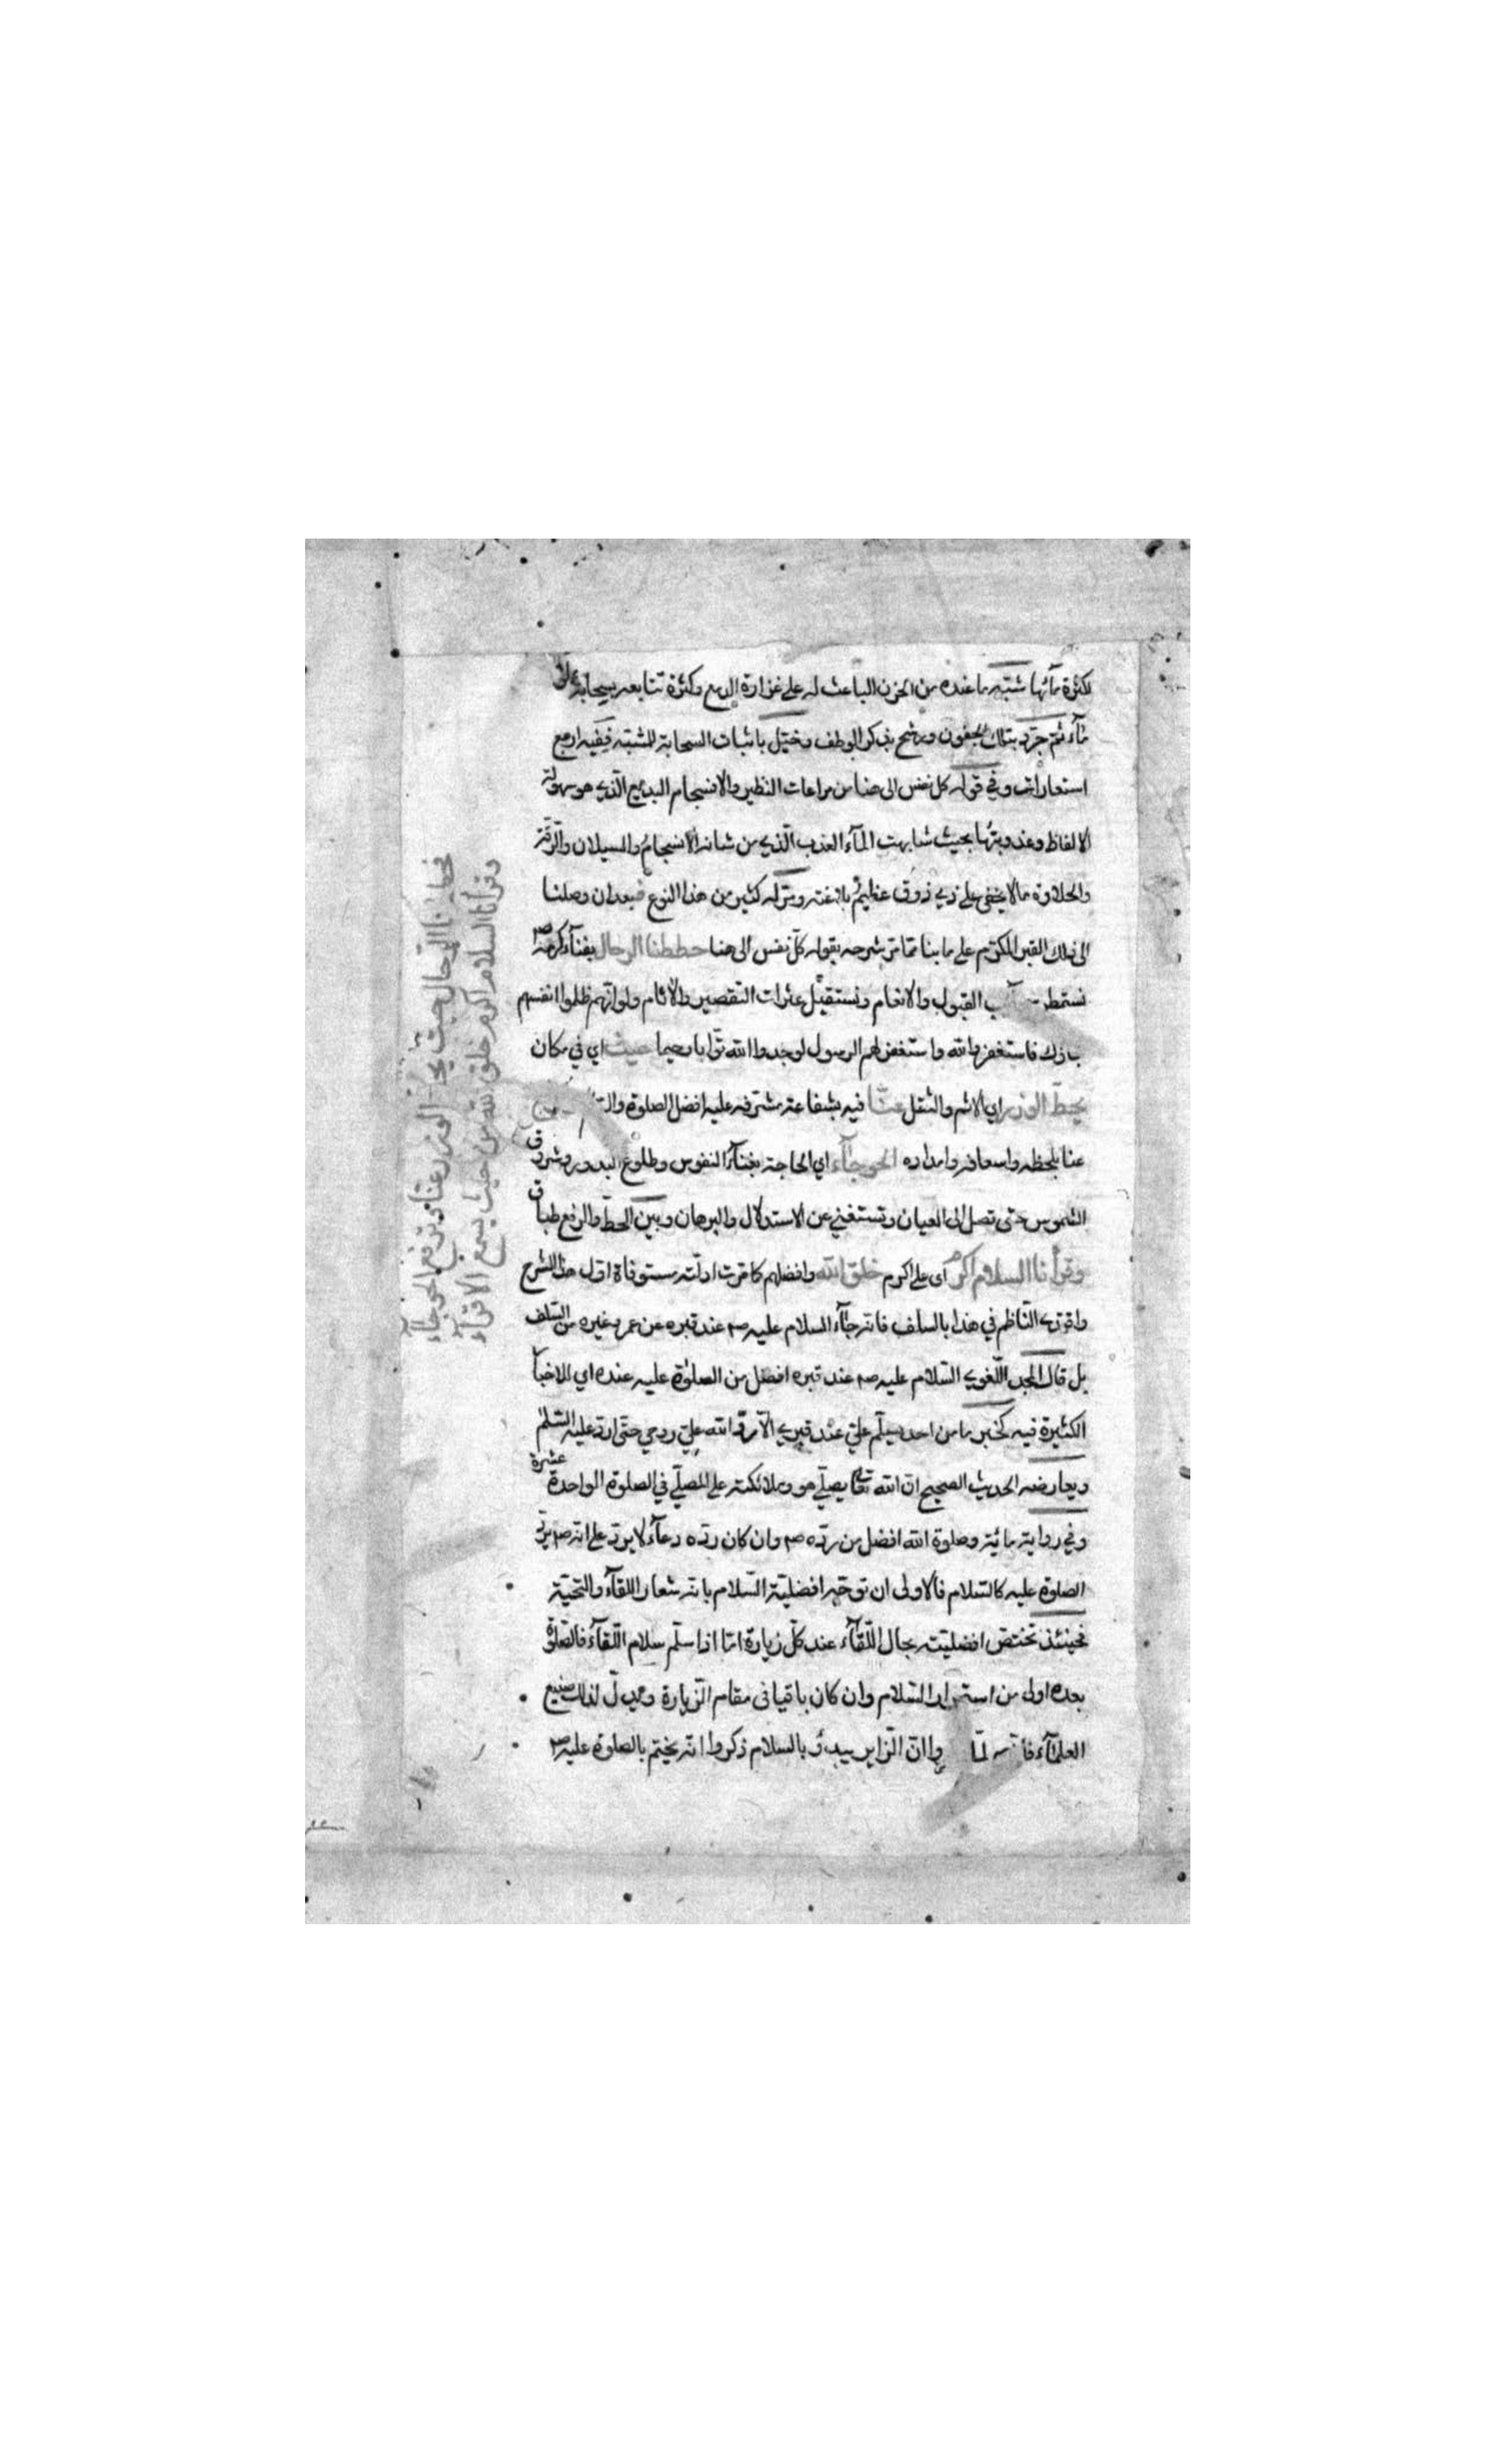 لكثرة مآئها شبّه ما عنده من الحزن الباعث له على غزارة الدمع وكثرة تتابعه بسحابة
مآء ثم جرّد بتلك الجفون ورشح بذكر الوطف وخيّل باثبات السحابة للمشبّه ففيه اربع
استعارات وفي قوله كل نفس الى هنا من مراعات النظير والانسجام البديع الّذي هو سهولة
الالفاظ وعذوبتها بحيث شابهت المآء العذب الّذي من شانه الانسجام والسيلان والرّقّة
والحلاوة ما لا يخفى على ذي ذوق عظيم بلاغته ومرّ له كثير من هذا النوع فبعد ان وصلنا
الى ذلك القبر المكرّم على ما بينا ممّا مرّ شرحه بقوله كلّ نفس الى هنا حططنا الرحال بفنآء كرمه صم
نستمطر القبول والانعام ونستقيل عثرات التقصير والآثام ولو انّهم ظلموا انفسهم
جاؤك فاستغفروا الله واستغفر لهم الرسول لوجدوا الله توّابا رحيما حيث اي في مكان
يحطّ الوزر اي الاثم والثقل عنّا فيه بشفاعة مشرّفه عليه افضل الصلوة
عنا بلحظه واسعافه وامداده الحوجآء اي الحاجة بغنآء النفوس وطلوع البدور وشروق
الشموس حتى تصل الى العيان وتستغني عن الاستدلال والبرهان وبين الحطّ والرفع طباق
وقرأنا السلام اكرم اى على اكرم خلق الله وافضلهم كما مرت ادلّته مستوفاة اوّل هذا الشرح
واقتدى النّاظم في هذا بالسلف فانه جآء السلام عليه صم عند قبره عن عمر وغيره من السّلف
بل قال المجد اللّغوي السّلام عليه صم عند قبره افضل من الصلوة عليه عنده اي للاخبار
الكثيرة فيه كخبر ما من احد يسلّم عليّ عند قبري الّا ردّ الله عليّ روحي حتّى اردّ عليه السّلم
ويعارضه الحديث الصحيح انّ الله تعا يصلّي هو وملائكته على المصلّي في الصلوة الواحدة عشرة
وفي رواية مائة وصلوة الله افضل من ردّه صم وان كان ردّه دعآء لا يردّ على انّه صم يردّ
الصلوة عليه كالسّلام فالاولى ان توجّه افضليّة السّلام بانّه شعار اللقآء والتحيّة
فحينئذ تختصّ افضليّته بحال اللّقآء عند كلّ زيارة امّا اذا سلّم سلام اللّقآء فالصلوة
بعده اولى من استمرار السّلام وان كان باقيا في مقام الزّيارة ويدلّ لذلك صنيع
العلمآء فا لمّا وا انّ الزّاير يبدؤ بالسلام ذكروا انّه يختم بالصلوة عليه صم
فحططنا الرّحال حيث يحطّ الوزر عنّا وترفع الحوجآء
وقرأنا السلام اكرم خلق الله من حيث يسمع الاقرآء